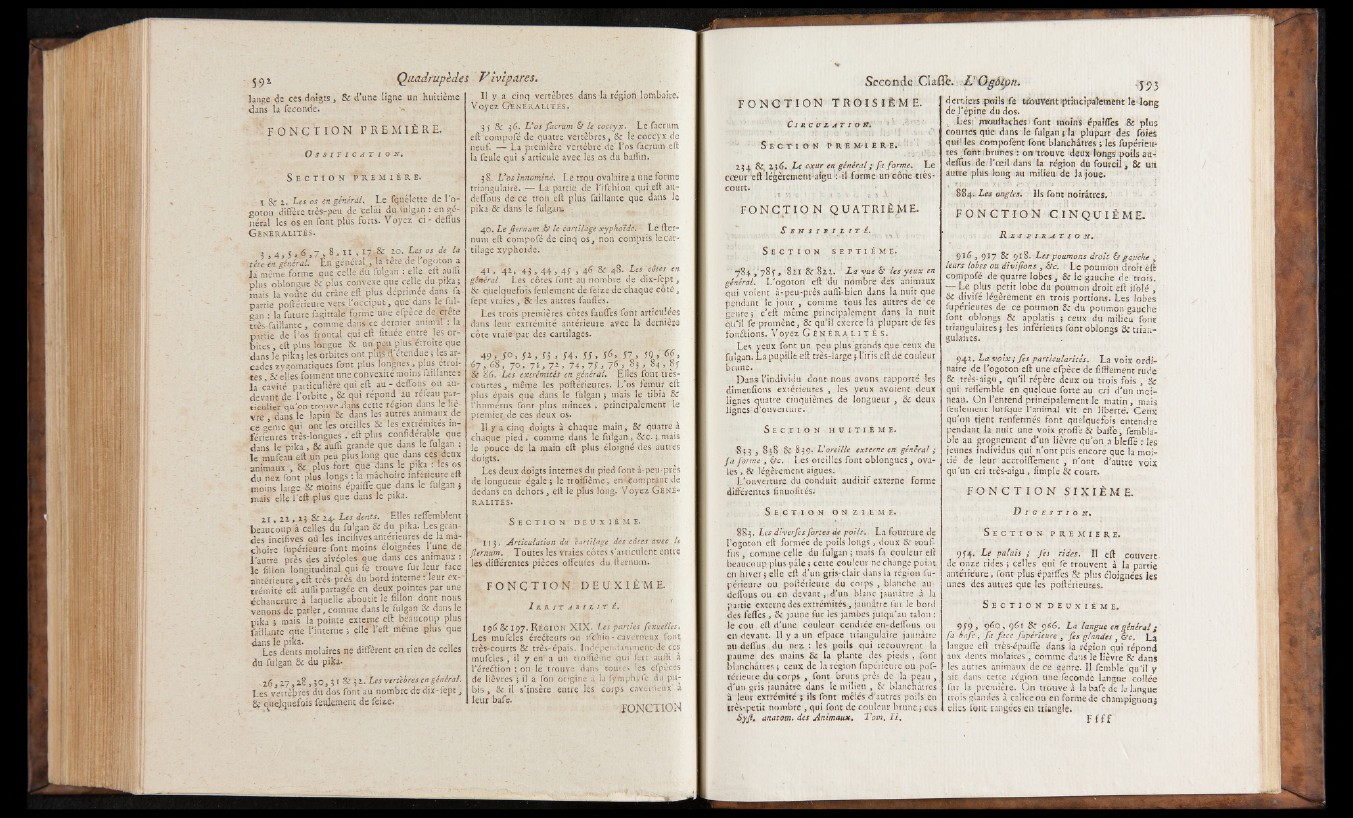 592 Quadrupèdes Vivipares.
lange de ces doigts, & d'une ligne un huitième
dans la seconde.
FONCTION PREMIÈRE.
OSSIFICATION.
SECTION PREMIERE.
1 & 2. Les os en général. Le squélette de l'o-
goton diffère très-peu de celui du sulgan : en gé-
néral les os en sont plus forts. Voyez ci-dessus
GENERALITÉS.
3, 4, 5, 6, 7, 8, 11, 17 & 20. Les os de la
tête en général. En général, la tête de l'ogoton a
la même forme que celle du sulgan : elle est aussi
plus oblongue & plus convexe que celle du pika;
mais la voûte du crâne est plus déprimée dans sa
partie postérieure vers l'occiput, que dans le sul-
gan : la suture sagittale forme une espèce de crête
très saillante, comme dans ce dernier animal : la
partie de l'os frontal qui est située entre les or-
bites, est plus longue & un peu plus étroite que
dans le pika; les orbites ont plus d'étendue; les ar-
cades zygomatiques sont plus longues, plus étroi-
tes, & elles forment une convexité moins saillante :
la cavité particulière qui est au-dessous ou au-
devant de l'orbite, & qui répond au réseau par-
ticulier qu'on trouve dans cette région dans le liè-
vre, dans le lapin & dans les autres animaux de
ce genre qui ont les oreilles & les extrémités in-
férieures très-longues, est plus considérable que
dans le pika, & aussi grande que dans le sulgan :
le museau est un peu plus long que dans ces deux
animaux, & plus fort que dans le pika : les os
du nez sont plus longs : la mâchoire inférieure est
moins large & moins épaisse que dans le sulgan;
mais elle l'est plus que dans le pika.
21, 22, 23 & 24. Les dents. Elles ressemblent
beaucoup à celles du sulgan & du pika. Les gran-
des incisives ou les incisives antérieures de la mâ-
choire supérieure sont moins éloignées l'une de
l'autre près des alvéoles que dans ces animaux :
le sillon longitudinal qui se trouve sur leur face
antérieure, est très-près du bord interne : leur ex-
trémité est aussi partagée en deux pointes par une
échancrure à laquelle aboutit le sillon dont nous
venons de parler, comme dans le sulgan & dans le
pika; mais la pointe externe est beaucoup plus
saillante que l'interne; elle l'est même plus que
dans le pika.
Les dents molaires ne diffèrent en rien de celles
du sulgan & du pika.
26, 27, 28, 30, 31 & 32. Les vertèbres en général.
Les vertèbres du dos sont au nombre de dix-sept,
& quelquefois seulement de seize.
Il y a cinq vertèbres dans la région lombaire.
Voyez GENERALITÉS.
35 & 36. L'os sacrum & le coccyx. Le sacrum
est composé de quatre vertèbres, & le coccyx de
neuf. — La première vertèbre de l'os sacrum est
la seule qui s'articule avec les os du bassin.
38. L'os innominé. Le trou ovalaire a une forme
triangulaire. — La partie de l'ischion qui est au-
dessous de ce trou est plus saillante que dans le
pika & dans le sulgan.
40. Le sternum & le cartilage xyphoïde. Le ster-
num est composé de cinq os, non compris le car-
tilage xyphoïde.
41, 42, 43, 44, 45, 46 & 48. Les côtes en
général. Les côtes sont au nombre de dix-sept,
& quelquefois seulement de seize de chaque côté,
sept vraies, & les autres fausses.
Les trois premières côtes fausses sont articulées
dans leur extrémité antérieure avec la dernière
côte vraie par des cartilages.
49, 50, 52, 53, 54, 55, 56, 57, 59, 66,
67, 68, 70, 71, 72, 74, 75, 76, 83, 84, 85
& 86. Les extrémités en général. Elles sont très-
courtes, même les postérieures. L'os fémur est
plus épais que dans le sulgan; mais le tibia &
l'humerus sont plus minces, principalement le
premier de ces deux os.
Il y a cinq doigts à chaque main, & quatre à
chaque pied, comme dans le sulgan, &c.; mais
le pouce de la main est plus éloigné des autres
doigts.
Les deux doigts internes du pied sont à-peu-près
de longueur égale; le troisième, en comptant de
dedans en dehors, est le plus long. Voyez GENE-
RALITES.
SECTION DEUXIÈME.
113. Articulation du cartilage des côtes avec le
sternum. Toutes les vraies côtes s'articulent entre
les différentes pièces osseuses du sternum.
FONCTION DEUXIÈME.
IRRITABILITÉ.
196 & 197. RÉGION XIX. Les parties sexuelles.
Les muscles érecteurs ou ischio-caverneux sont
très-courts & très-épais. Indépendamment de ces
muscles, il y en a un troisième qui sert aussi à
l'érection : on le trouve dans toutes les espèces
de lièvres; il a son origine à la symphyse du pu-
bis, & il s'insère entre les corps caverneux à
leur base.
FONCTION
Seconde Classe. L'Ogoton. 593
FONCTION TROISIÈME.
CIRCULATION.
SECTION PREMIERE.
234 & 236. Le cœur en général; sa forme. Le
cœur est légèrement aigu : il forme un cône très-
court.
FONCTION QUATRIÈME.
SENSIBILITÉ.
SECTION SEPTIÈME.
784, 785, 821 & 822. La vue & les yeux en
général. L'ogoton est du nombre des animaux
qui voient à-peu-près aussi-bien dans la nuit que
pendant le jour, comme tous les autres de ce
genre; c'est même principalement dans la nuit
qu'il se promène, & qu'il exerce la plupart de ses
fonctions. Voyez GENERALITÉS.
Les yeux sont un peu plus grands que ceux du
sulgan. La pupille est très-large; l'iris est de couleur
brune.
Dans l'individu dont nous avons rapporté les
dimensions extérieures, les yeux avoient deux
lignes quatre cinquièmes de longueur, & deux
lignes d'ouverture.
SECTION HUITIÈME.
833, 838 & 839. L'oreille externe en général;
sa forme, &c. Les oreilles sont oblongues, ova-
les, & légèrement aigues.
L'ouverture du conduit auditif externe forme
différentes sinuosités.
SECTION ONZIEME.
883. Les diverses sortes de poils. La fourrure de
l'ogoton est formée de poils longs, doux & touf-
fus, comme celle du sulgan; mais sa couleur est
beaucoup plus pâle; cette couleur ne change point
en hiver; elle est d'un gris-clair dans la région su-
périeure ou postérieure du corps, blanche au-
dessous ou en devant, d'un blanc jaunâtre à la
partie externe des extrémités, jaunâtre sur le bord
des fesses, & jaune sur les jambes jusqu'au talon :
le cou est d'une couleur cendrée en-dessous ou
en devant. Il y a un espace triangulaire jaunâtre
au-dessus du nez : les poils qui recouvrent la
paume des mains & la plante des pieds, sont
blanchâtres; ceux de la région supérieure ou pos-
térieure du corps, sont bruns près de la peau,
d'un gris jaunâtre dans le milieu, & blanchâtres
à leur extrémité; ils sont mêlés d'autres poils en
très-petit nombre, qui sont de couleur brune; ces
Syst. anatom. des Animaux. Tom. II.
derniers poils se trouvent principalement le long
de l'épine du dos.
Les moustaches sont moins épaisses & plus
courtes que dans le sulgan; la plupart des soies
qui les composent sont blanchâtres; les supérieu-
res sont brunes : on trouve deux longs poils au-
dessus de l'œil dans la région du sourcil, & un
autre plus long au milieu de la joue.
884. Les ongles. Ils sont noirâtres.
FONCTION CINQUIÈME.
RESPIRATION.
916, 917 & 918. Les poumons droit & gauche,
leurs lobes ou divisions, &c. Le poumon droit est
composé de quatre lobes, & le gauche de trois.
— Le plus petit lobe du poumon droit est isolé,
& divisé légèrement en trois portions. Les lobes
supérieures de ce poumon & du poumon gauche
sont oblongs & applatis; ceux du milieu sont
triangulaires; les inférieurs sont oblongs & trian-
gulaires.
942. La voix; ses particularités. La voix ordi-
naire de l'ogoton est une espèce de sifflement rude
& très-aigu, qu'il répère deux ou trois fois, &
qui ressemble en quelque sorte au cri d'un moi-
neau. On l'entend principalement le matin, mais
seulement lorsque l'animal vit en liberté. Ceux
qu'on tient renfermés font quelquefois entendre
pendant la nuit une voix grosse & basse, sembla-
ble au grognement d'un lièvre qu'on a blessé : les
jeunes individus qui n'ont pris encore que la moi-
tié de leur accroissement, n'ont d'autre voix
qu'un cri très-aigu, simple & court.
FONCTION SIXIÈME.
DIGESTION.
SECTION PREMIERE.
954. Le palais; ses rides. Il est couvert
de onze rides; celles qui se trouvent à la partie
antérieure, sont plus épaisses & plus éloignées les
unes des autres que les postérieures.
SECTION DEUXIEME.
959, 960, 963 & 966. La langue en général;
sa base, sa face supérieure, ses glandes, &c. La
langue est très-épaisse dans la région qui répond
aux dents molaires, comme dans le lièvre & dans
les autres animaux de ce genre. Il semble qu'il y
ait dans cette région une seconde langue collée
sur la première. On trouve à la base de la langue
trois glandes à calice ou en forme de champignon;
elles sont rangées en triangle.
Ffff